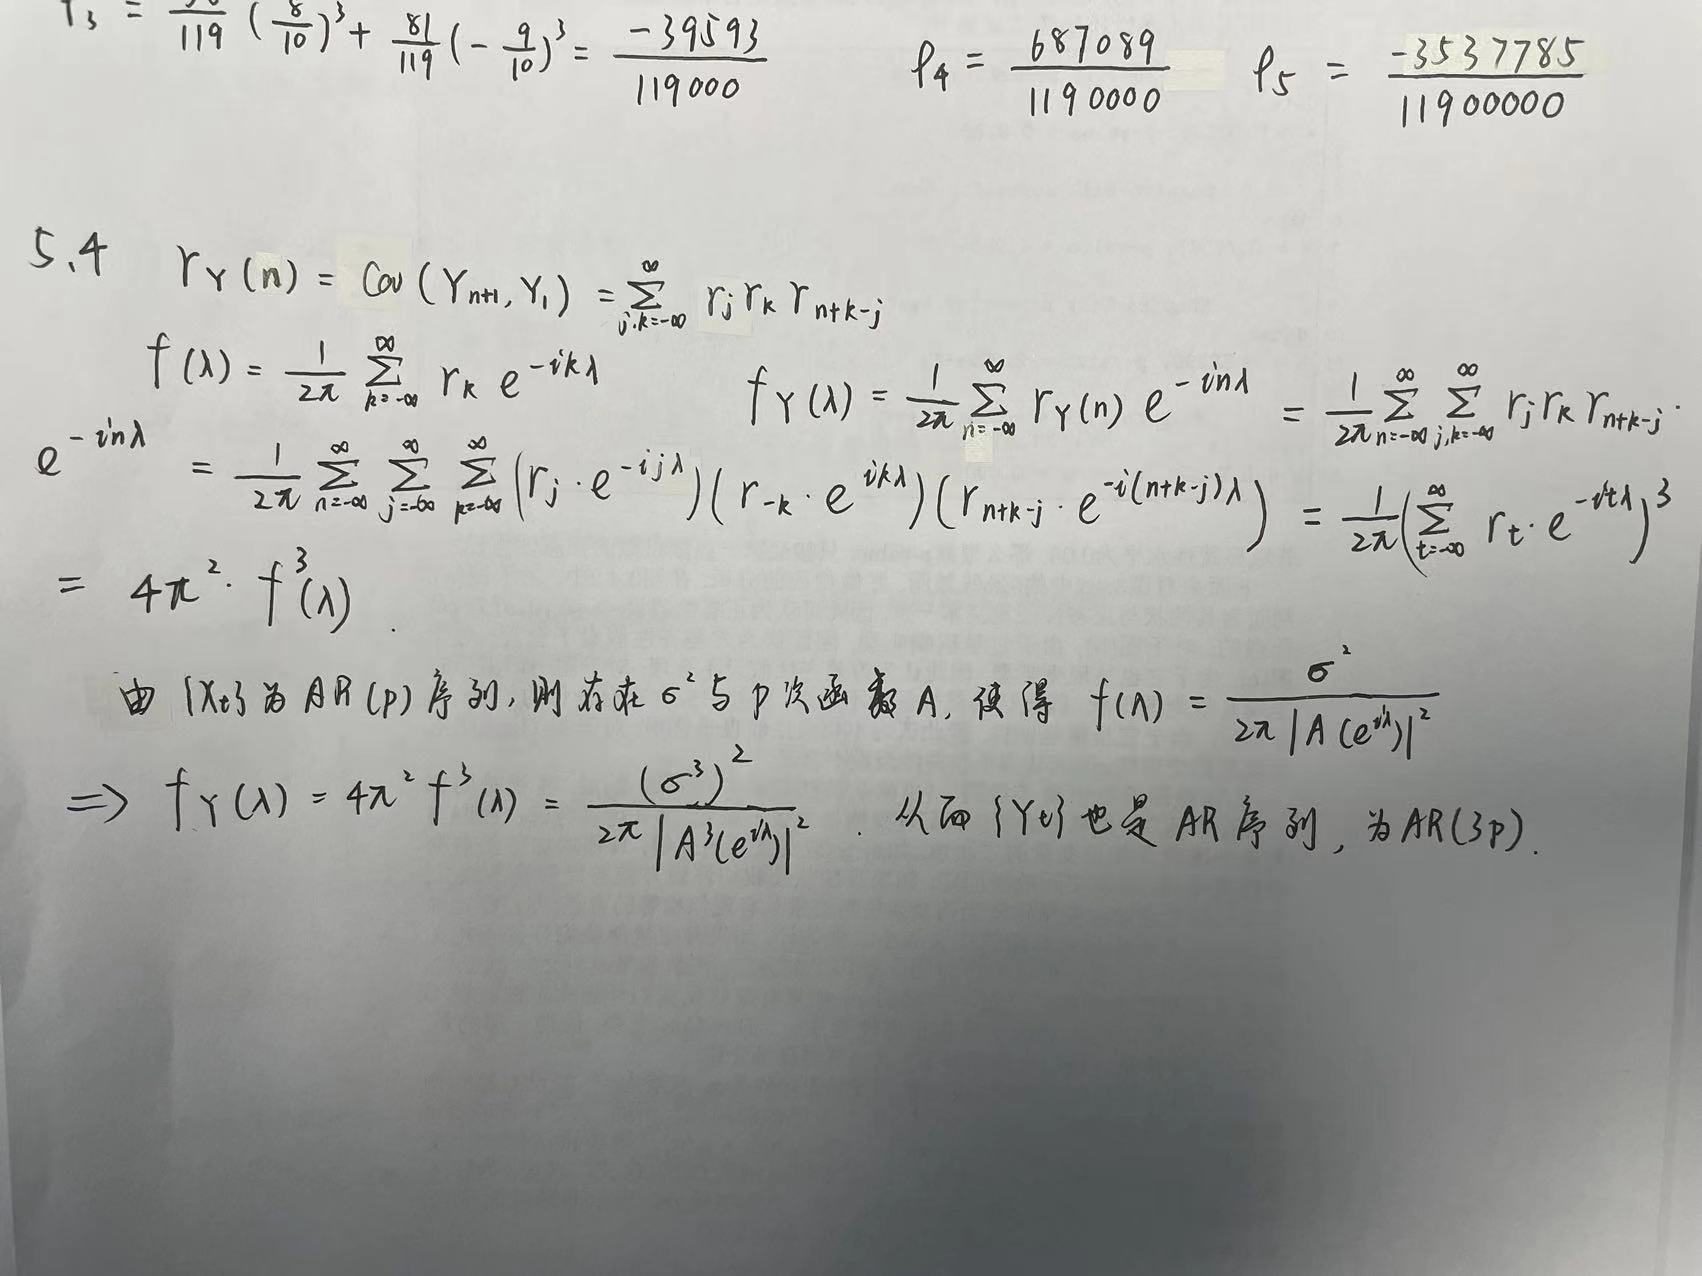 = 119 (8/10)³ + 81/119 (-9/10)³ = -39593/119000 ρ₄ = 687089/1190000 ρ₅ = -3537785/11900000
5.4 r_Y(n) = Cov(Y_{n+1}, Y_1) = ∑_{j,k=-∞}^{∞} r_j r_k r_{n+k-j}
f(λ) = 1/2π ∑_{k=-∞}^{∞} r_k e^{-ikλ} f_Y(λ) = 1/2π ∑_{n=-∞}^{∞} r_Y(n) e^{-inλ} = 1/2π ∑_{n=-∞}^{∞} ∑_{j,k=-∞}^{∞} r_j r_k r_{n+k-j} ·
e^{-inλ} = 1/2π ∑_{n=-∞}^{∞} ∑_{j=-∞}^{∞} ∑_{k=-∞}^{∞} (r_j · e^{-ijλ})(r_{-k} · e^{ikλ})(r_{n+k-j} · e^{-i(n+k-j)λ}) = 1/2π (∑_{t=-∞}^{∞} r_t · e^{-itλ})³
= 4π² · f³(λ).
由{X_t}为AR(p)序列,则存在σ²与p次函数A,使得 f(λ) = σ²/2π|A(e^{iλ})|²
⇒ f_Y(λ) = 4π² f³(λ) = (σ³)²/2π|A³(e^{iλ})|². 从而{Y_t}也是AR序列,为AR(3p).